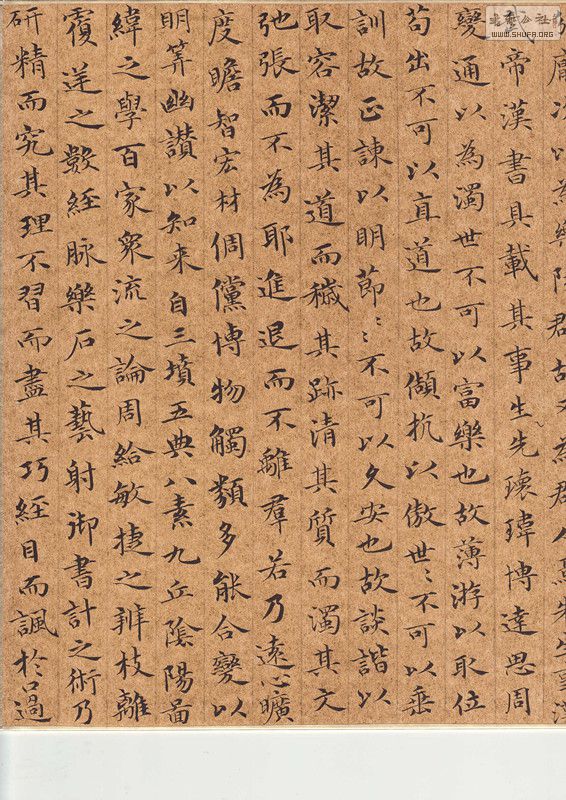 WWW.SHUFA.ORG
帝漢書具載其事生先瓌瑋博達思周
變通以為濁世不可以富樂也故薄游以取位
苟出不可以直道也故傾抗以傲世〻不可以垂
訓故正諫以明節〻不可以久安也故談諧以
取容潔其道而穢其跡清其質而濁其文
弛張而不為耶進退而不離群若乃遠心曠
度瞻智宏材倜儻博物觸類多能合變以
明筭幽讚以知来自三墳五典八素九丘陰陽啚
緯之學百家眾流之論周給敏捷之辨枝離
覆逆之數經脉樂石之藝射御書計之術乃
研精而究其理不習而盡其巧經目而諷於口過